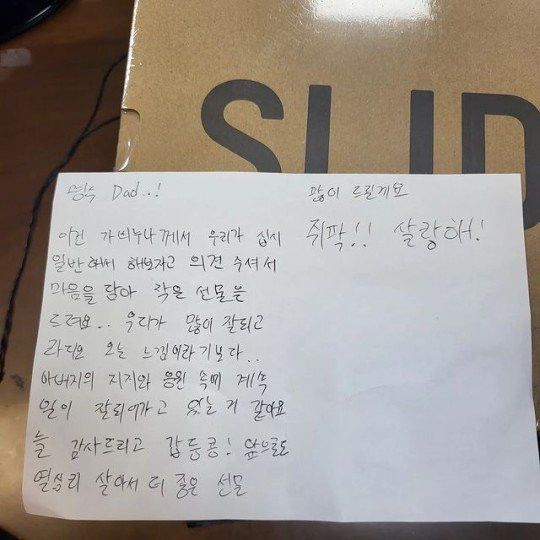 SLID
명수 Dad..!
이건 가비누나께서 우리가 십시
일반해서 해보자고 의견 주셔서
마음을 담아 작은 선물을
드려요.. 우리가 많이 잘되고
라디오 오는 느낌이라기보다..
아버지의 지지와 응원 속에 계속
일이 잘되어가고 있는 거 같아요
늘 감사드리고 갑동콩! 앞으로도
열심히 살아서 더 좋은 선물
많이 드릴게요
쥐팍!! 살랑해!